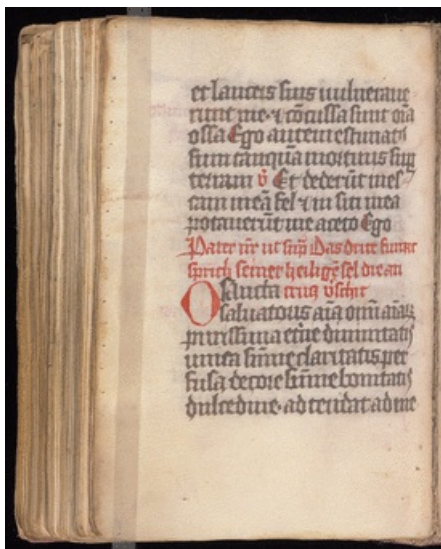 et lanceis suis uulneraue
runt me · ⁊ cōcussa sunt oīa
ossa Ego autem estimatꝰ
sum tanquā mortuus suꝑ
terram ℣ Et dederūt in es
cam meā fel ⁊ in siti mea
potauerūt me aceto Ego
Pater nr̄ ut supͣ Das dritt
sprich seiner heiligē sel die an
O Sancta crucꝫ
saluatoris aīa om̄i aīaꝝ
purissima
unica sūme claritatis per
fusa decore sūme bonitatis
dulcedine · ad tendat ad me